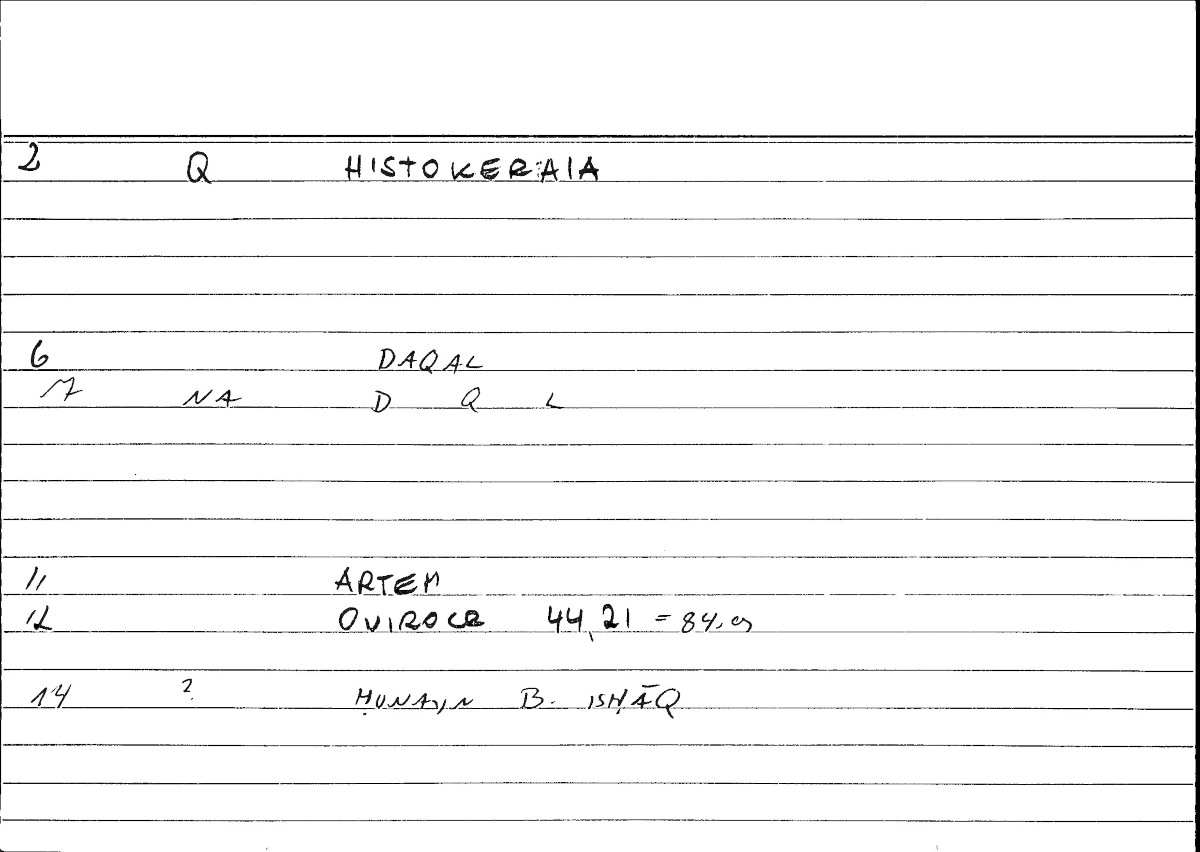 2 Q HISTOKERAIA
6 DAQAL
7 NA D Q L
11 ARTEM
12 OVIROCR 44,21 = 84,
14 ? ḤUNAYN B. ISḤĀQ